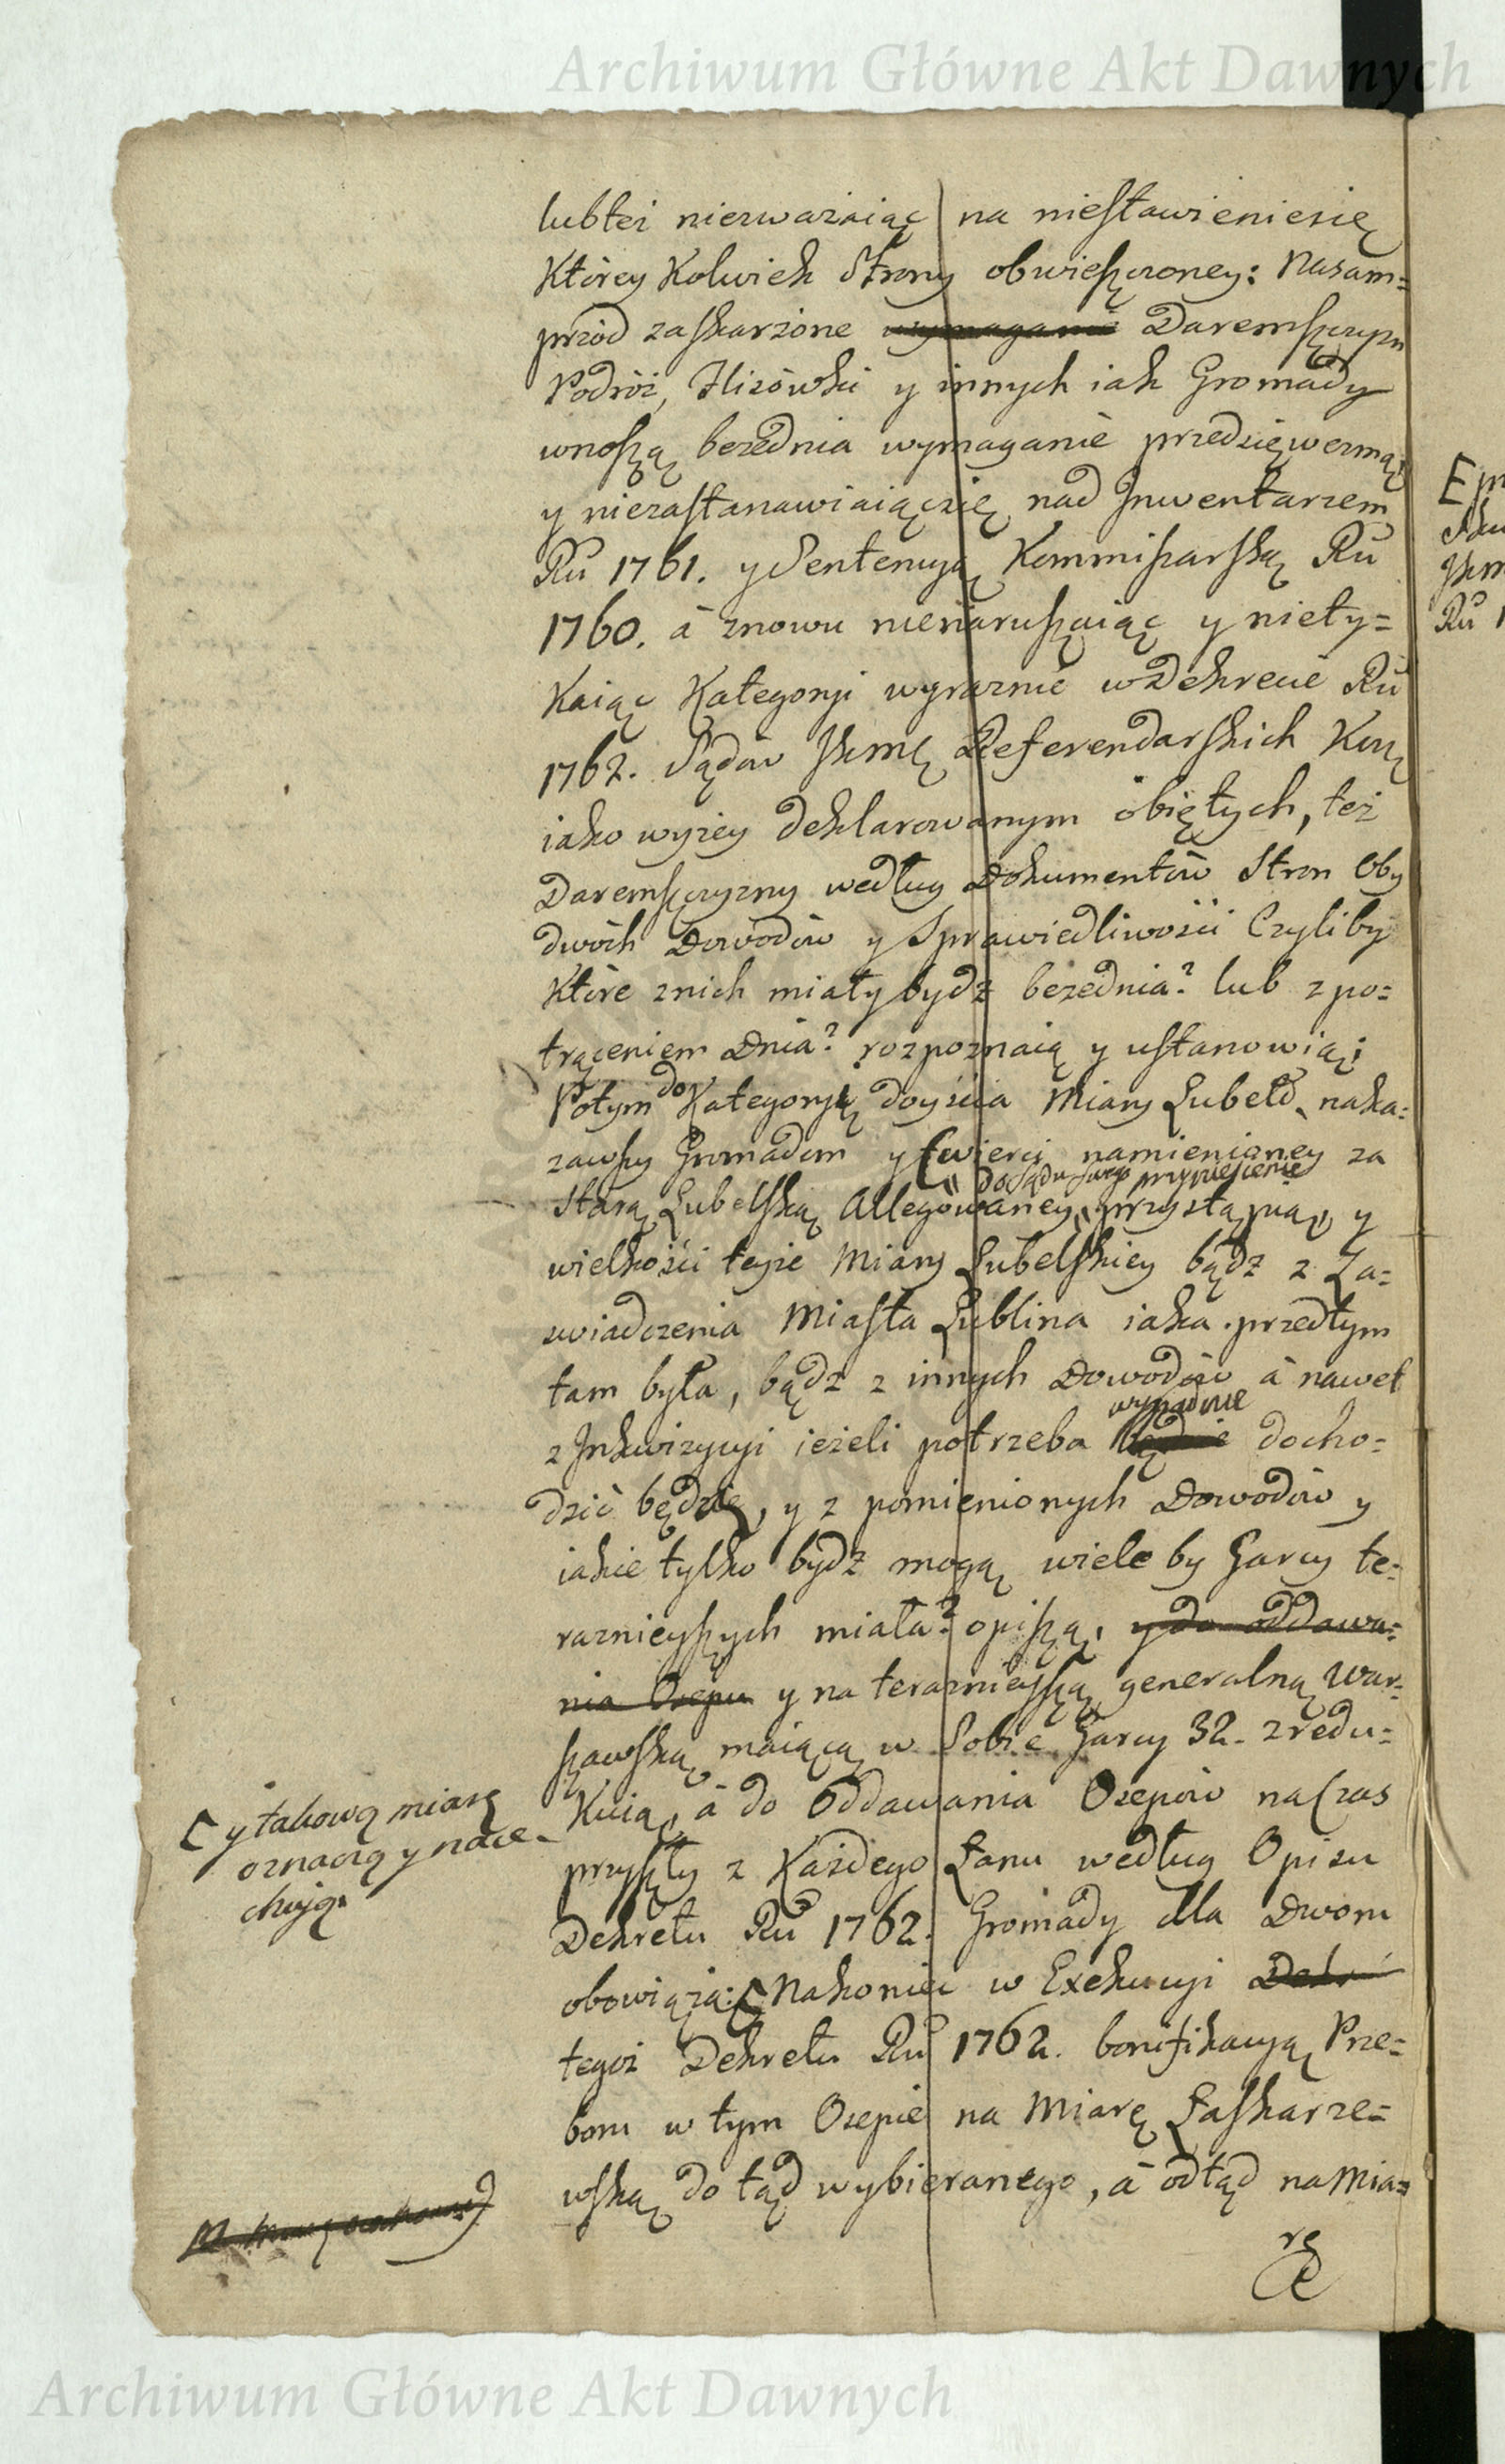 Archiwum Główne Akt Dawnych
lubteż niezważaiąc na niestawieniesię
Ktorey Kolwiek Strony obwieszczoney: Nasam=
przód zaskarżone wymaganie Daremszczyzn
Podróż, Stróżki y innych iak Gromady
wnoszą bezednia wymaganie przedsięwezmą,
y niezastanawiaiącsię nad Inwentarzem
Ru 1761. y Sentencyą Kommissarską Ru
1760. à znowu nienaruszaiąc y niety=
Kaiąc Kategoryi wyraznie w Dekrecie Ru
1762. Sądów Jkmci Referendarskich Kor:
iako wyżey deklarowanym obiętych, też
Daremszczyzny według Dokumentów Stron Oby
dwóch Dowodów y Sprawiedliwości Czyliby
Które znich miały bydź bezednia? lub z po=
trąceniem Dnia? rozpoznaią y ustanowią;
Potym do Kategoryi doyścia Miary Lubel: naka=
zawszy Gromadom y Cwierci namienioney za
do Sądu swego przyniesienie
Starą Lubelską Allegowaney, przystąpią, y
wielkości teyże Miary Lubelskiey bądź z Za=
swiadczenia Miasta Lublina iaka przedtym
tam była, bądź z innych Dowodów à nawet
wypadnie
z Inkwizycyi ieżeli potrzeba będzie docho=
dzić będą, y z pomienionych Dowodów y
iakie tylko bydź mogą wiele by Garcy te=
raznieyszych miała? opiszą, y do oddawa=
nia Osepu y na teraznieyszą generalną War=
szawską maiącą w Sobie Garcy 32. zredu=
Kuią, à do Oddawania Osepów na Czas
[ y takową miarę
oznaczą y nace=
chują.
przyszły z Każdego Łanu według Opisu
Dekretu Ru 1762. Gromady dla Dworu
obowiążą: [ Nakoniec w Exekucyi Dekr
tegoż Dekretu Ru 1762. bonifikacyą Prze=
boru w tym Osepie na Miarę Łaskarze=
wską do tąd wybieranego, à odtąd na Mia=
rę
Ru
Archiwum Główne Akt Dawnych